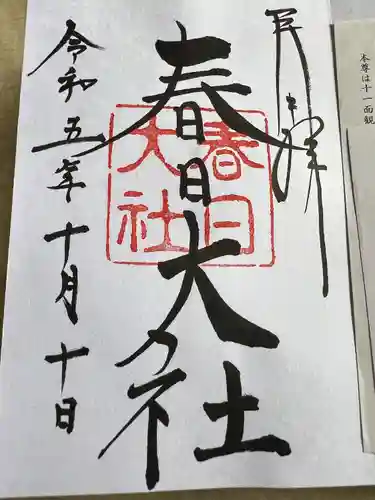 奉拝
春日大社
春日
大社
令和五年十月十日
本尊は十一面観